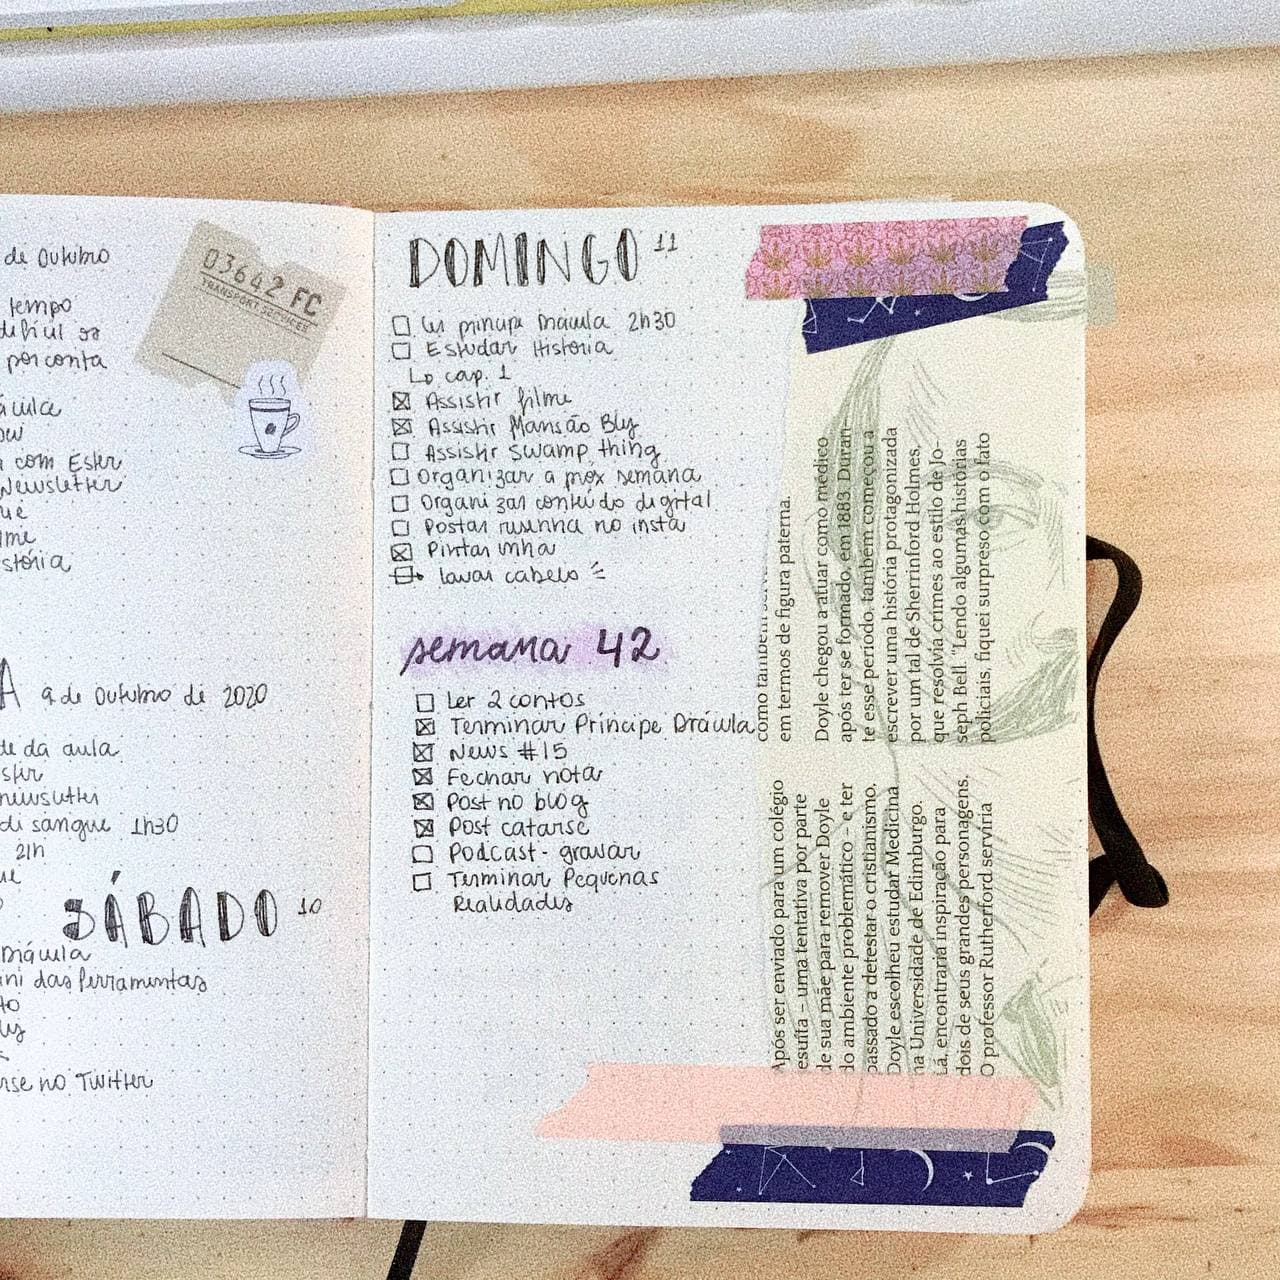 de Outubro
tempo
difícil se
por conta
ow
com Ester
Newsletter
ue
lme
stória
03642 FC
TRANSPORT SERVICES
A 9 de Outubro de 2020
de da aula
ster
newsletter
di sangue 1h30
21h
ue
SÁBADO 10
Drácula
ini das ferramentas
to
ly
rse no Twitter
DOMINGO 11
Ler príncipe Drácula 2h30
Estudar História
Lo cap. 1
Assistir filme
Assistir Mansão Bly
Assistir swamp thing
Organizar a próx semana
Organizar conteúdo digital
Postar resenha no insta
Pintar unha
lavar cabelo
semana 42
Ler 2 contos
Terminar Príncipe Drácula
News #15
Fechar nota
Post no blog
Post catarse
Podcast - gravar
Terminar Pequenas
Realidades
Após ser enviado para um colégio
esuíta – uma tentativa por parte
de sua mãe para remover Doyle
do ambiente problemático – e ter
passado a detestar o cristianismo,
Doyle escolheu estudar Medicina
na Universidade de Edimburgo.
Lá, encontraria inspiração para
dois de seus grandes personagens.
O professor Rutherford serviria
como também
em termos de figura paterna.
Doyle chegou a atuar como médico
após ter se formado, em 1883. Duran-
te esse período, também começou a
escrever uma história protagonizada
por um tal de Sherrinford Holmes,
que resolvia crimes ao estilo de Jo-
seph Bell. "Lendo algumas histórias
policiais, fiquei surpreso com o fato